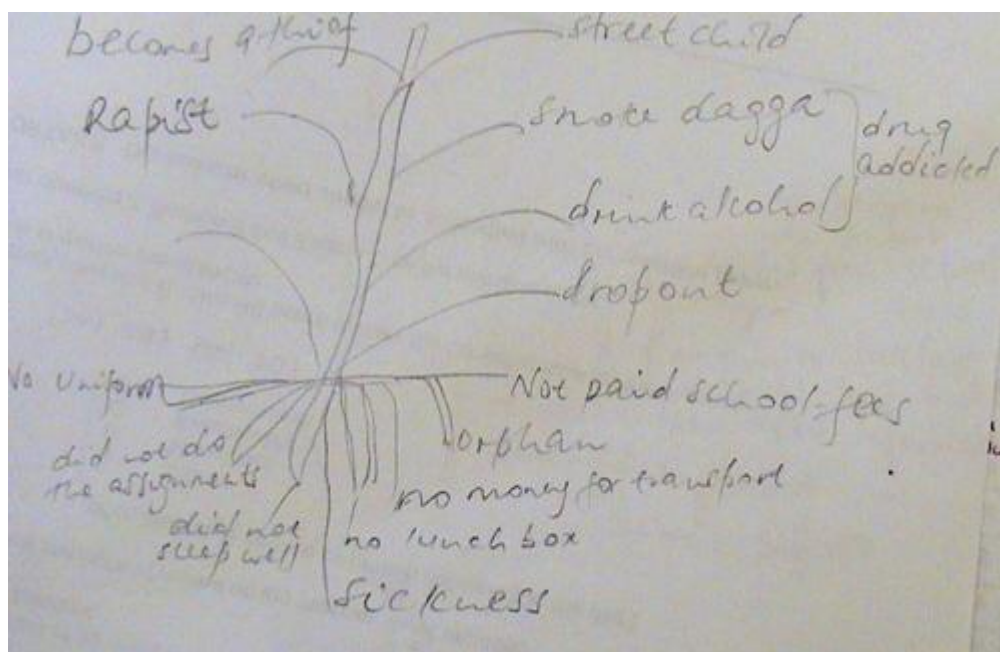 becomes a thief
street child
Rapist
smoke dagga
drug
addicted
drink alkohol
dropout
No Uniform
Not paid school-fees
did not do
the assignments
orphan
no money for transport
did not
sleep well
no lunch box
Sickness